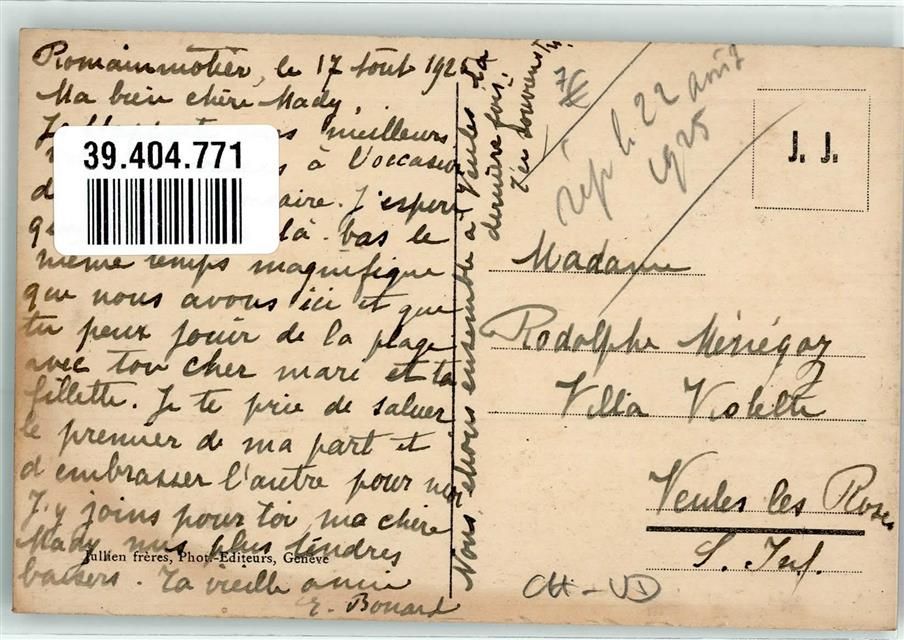 Romainmotier, le 17 Août 192
Ma bien chère Mady,
meilleurs
39.404.771
à l'occasion
aire. J'espère
là-bas le
même temps magnifique
que nous avons ici et que
tu peux jouir de la plage
avec ton cher mari et ta
fillette. Je te prie de saluer
le premier de ma part et
d'embrasser l'autre pour moi
J'y joins pour toi, ma chère
Mady mes plus tendres
baisers. Ta vieille amie
E. Bonard
Jullien frères, Phot.-Editeurs, Genève
Nous étions ensemble à Veules la
dernière fois.
T'en souviens-tu
7€
rép. l. 22 août
1925
J. J.
Madame
Rodolphe Ménégoz
Villa Violette
Veules les Roses
S. Inf.
CH - VD